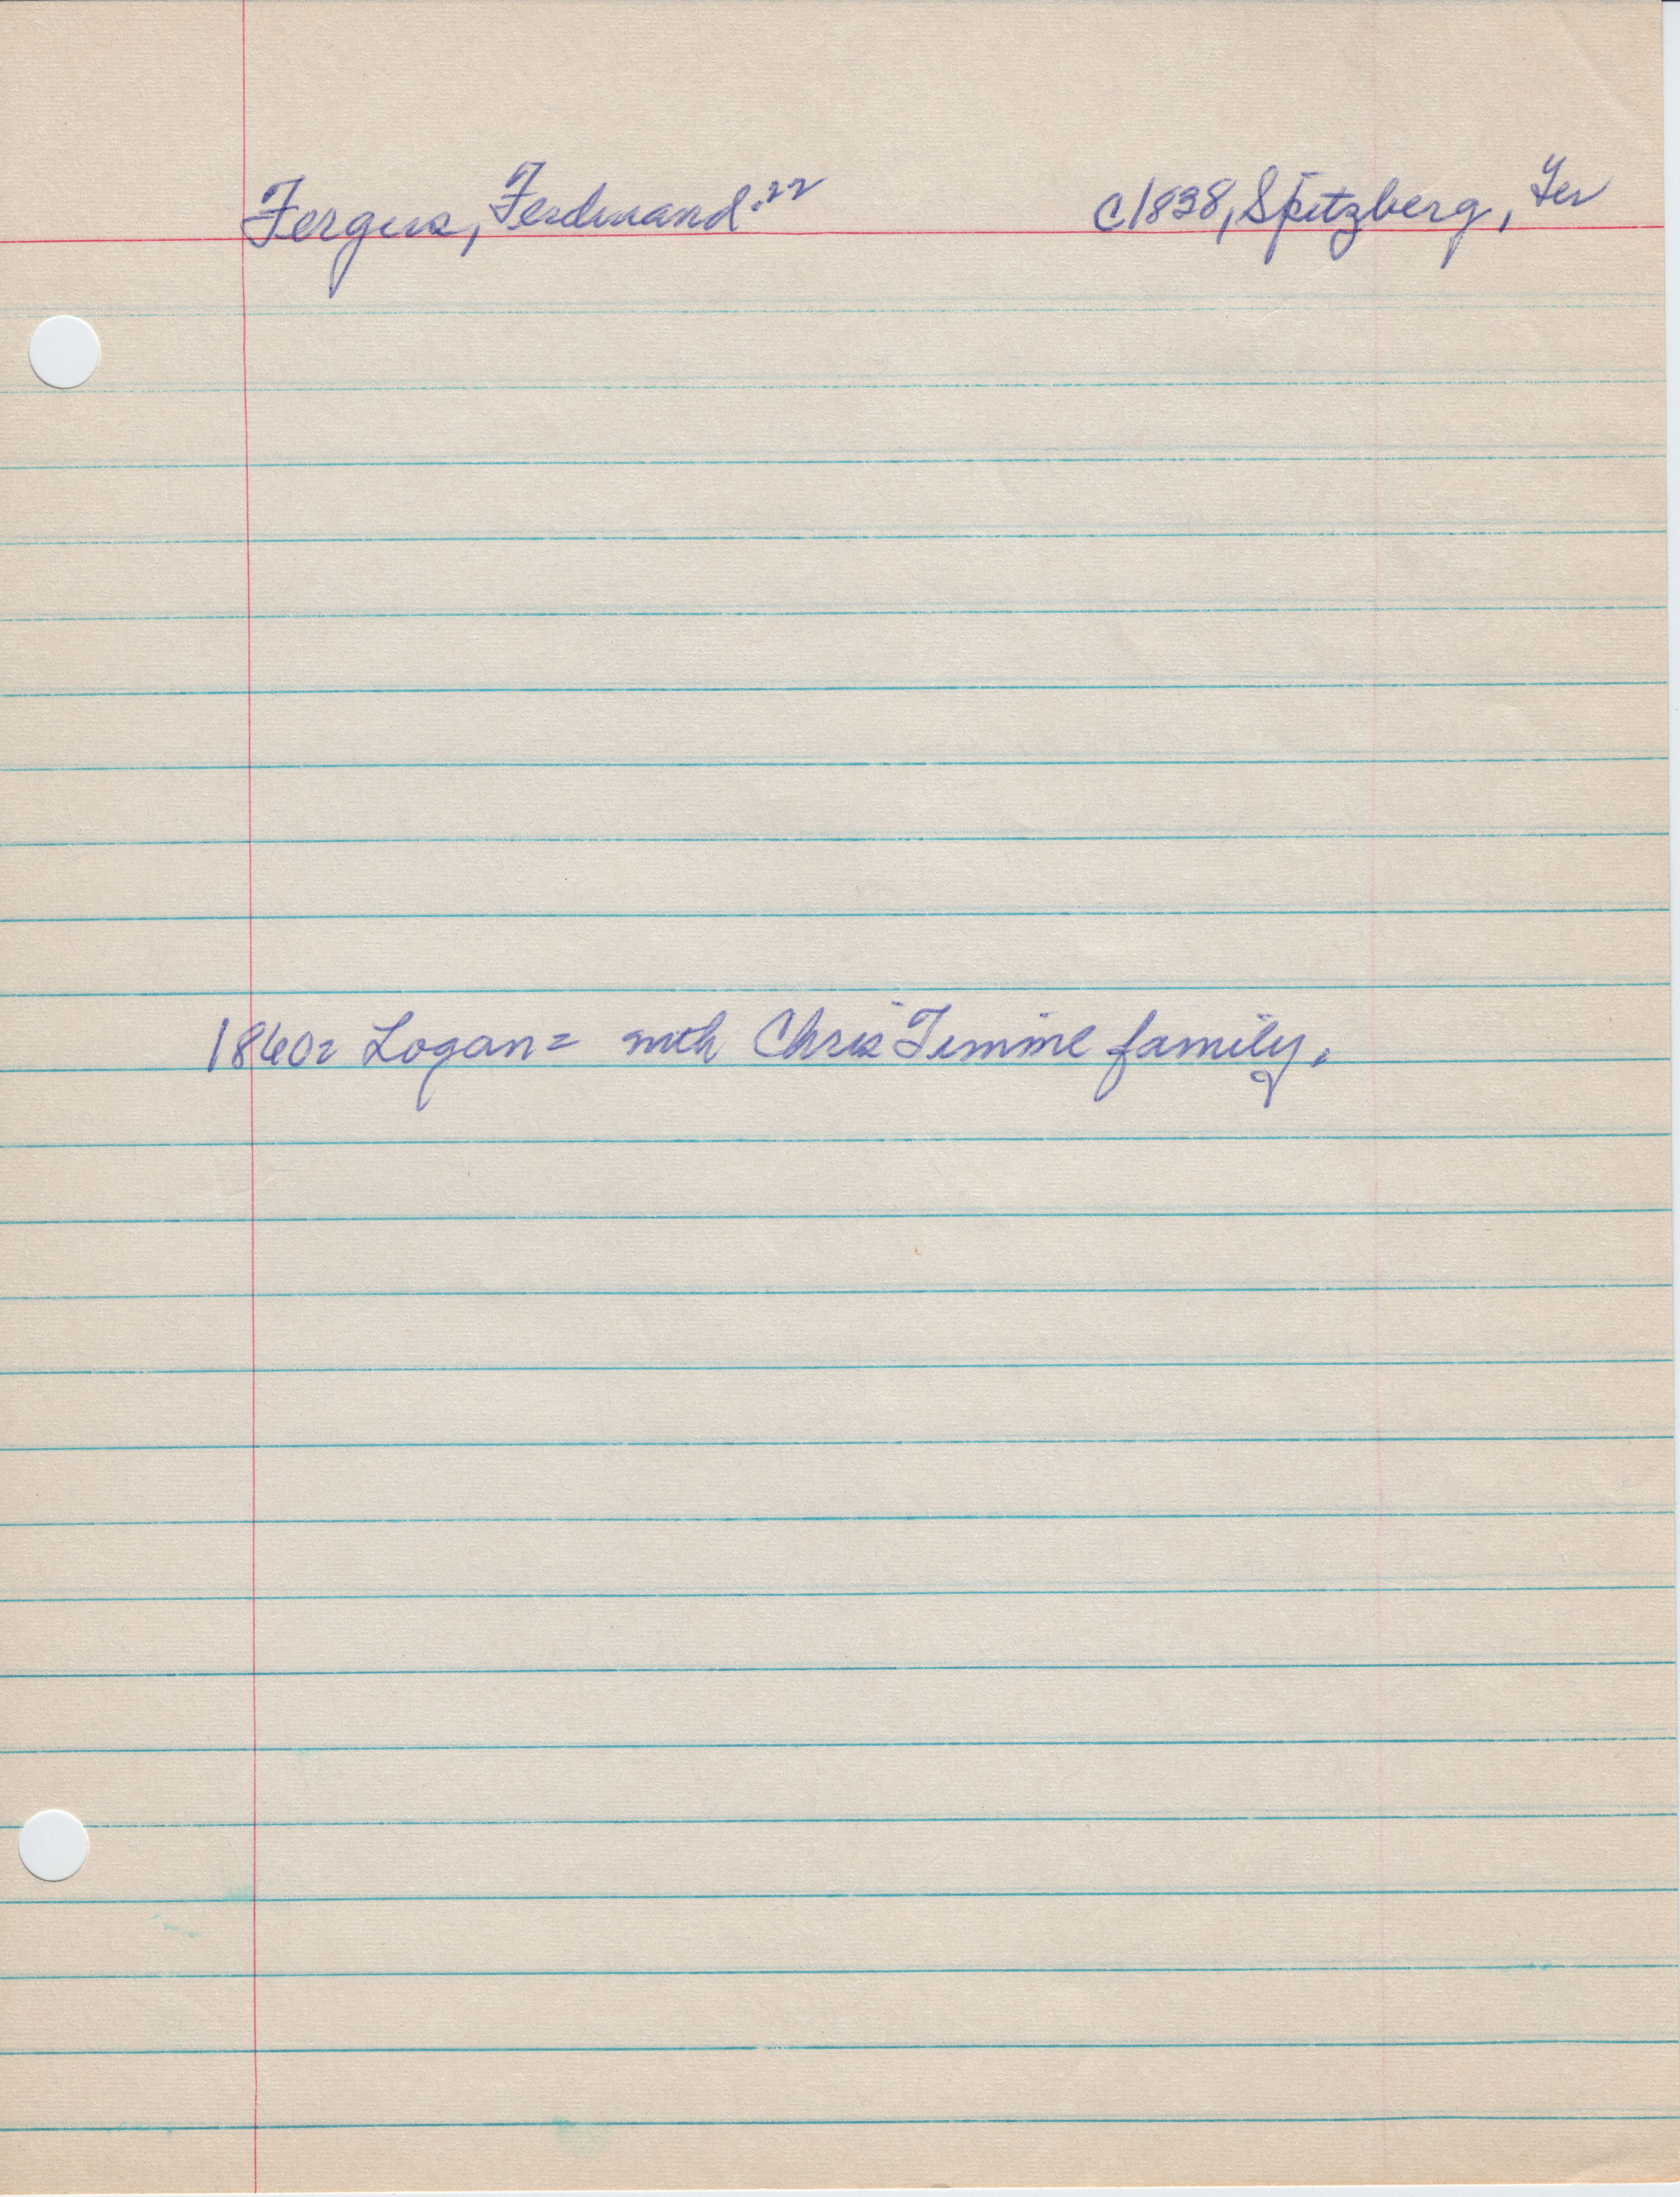 Fergus, Ferdinand. 22 c1838, Spitzberg, Ger
1860= Logan= with Chris Timme family.